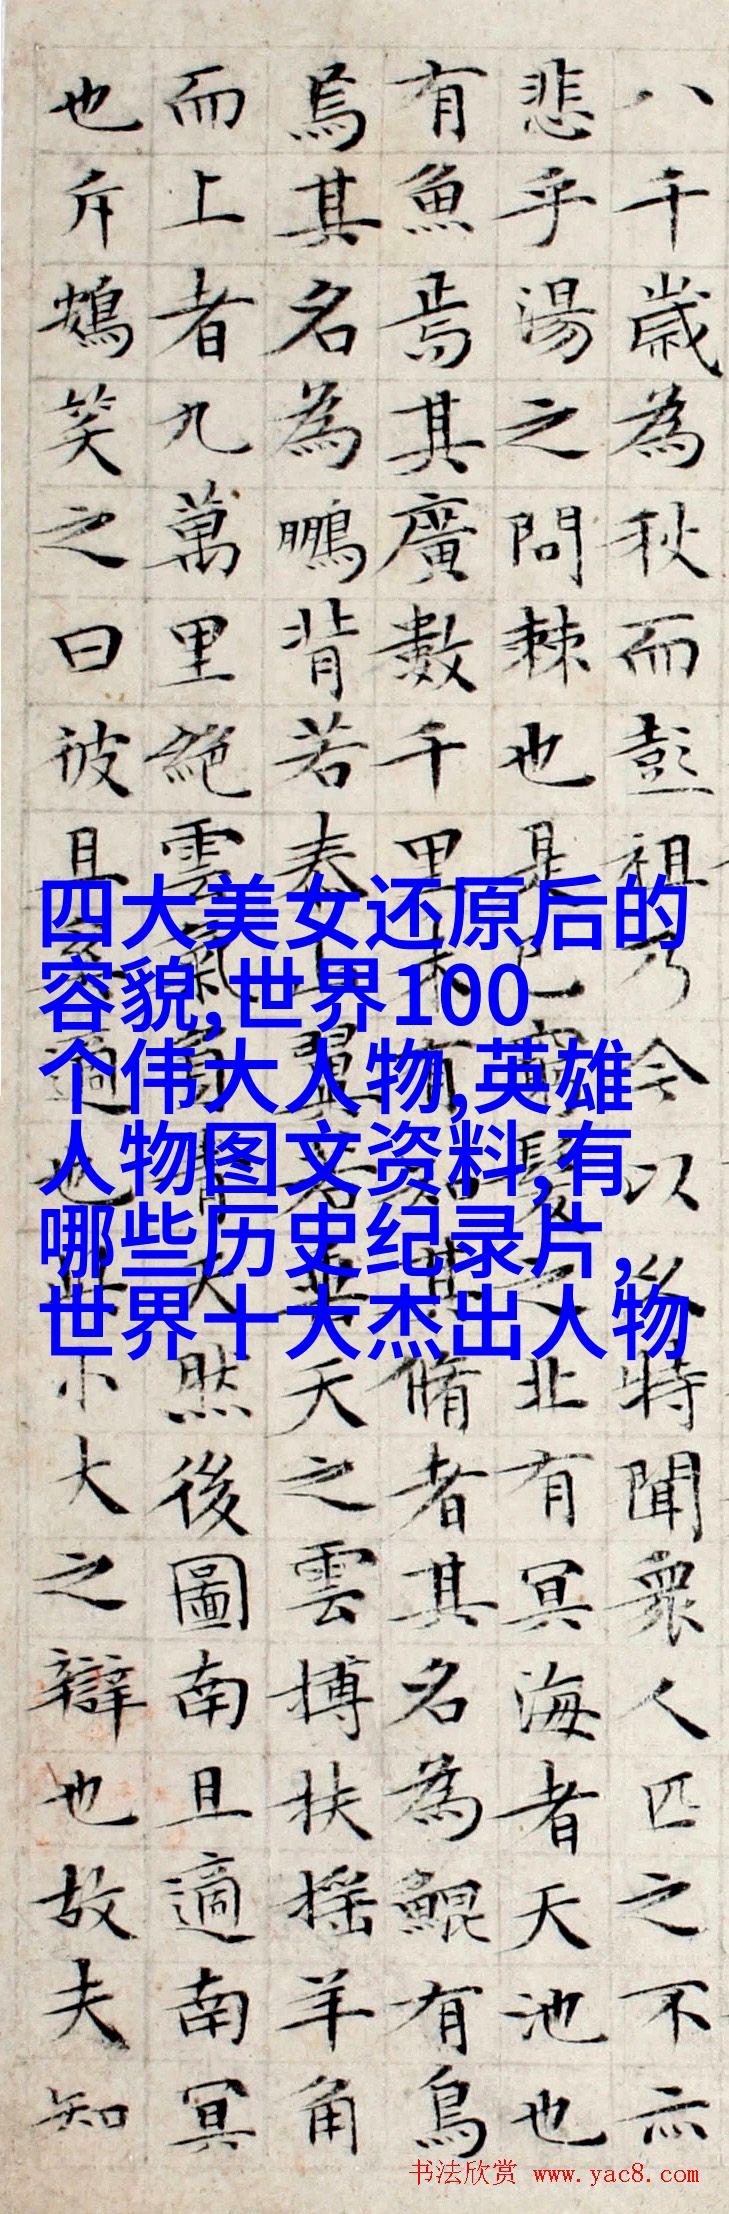 八千歲為秋而彭祖乃今以久特聞衆人匹之不亦
悲乎湯之問棘也是已窮髮之北有冥海者天池也
有魚焉其廣數千里未有知其脩者其名為鯤有鳥
焉其名為鵬背若泰山翼若垂天之雲搏扶搖羊角
而上者九萬里絕雲氣負青天然後圖南且適南冥
也斥鴳笑之曰彼且奚適也此小大之辯也故夫知
四大美女还原后的
容貌,世界100
个伟大人物,英雄
人物图文资料,有
哪些历史纪录片,
世界十大杰出人物
书法欣赏 www.yac8.com